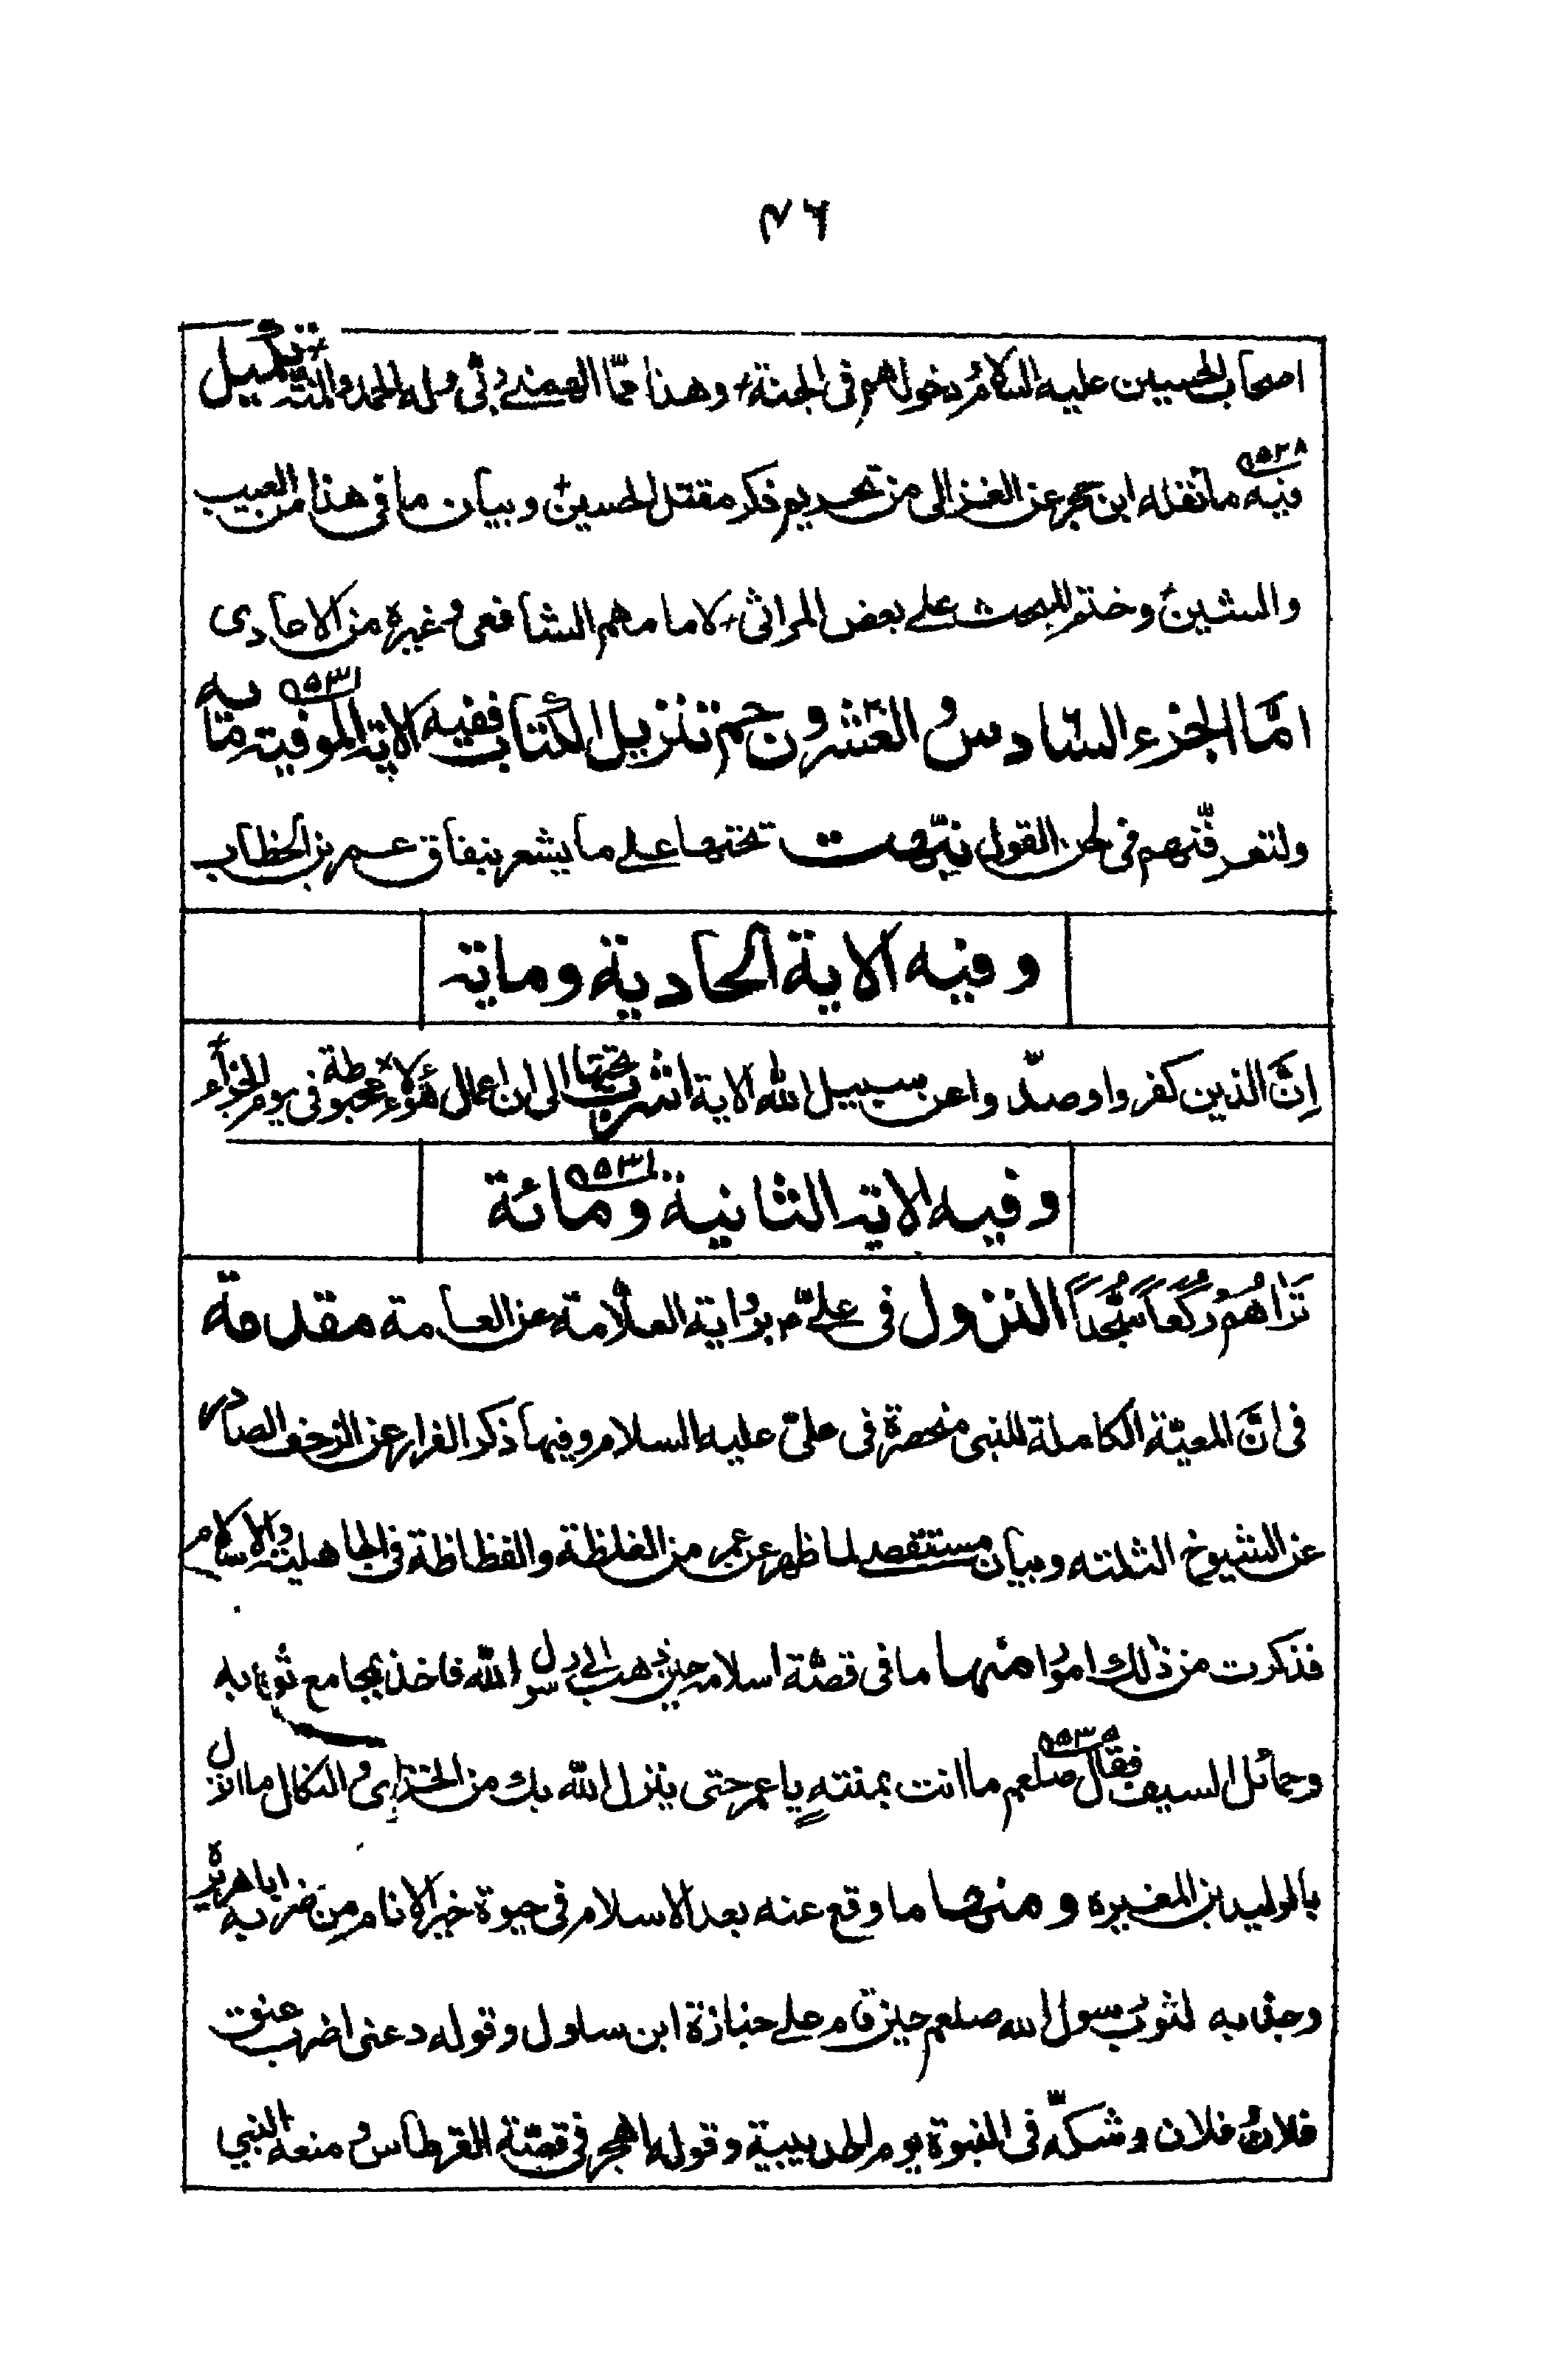 ٤٦
اصحاب الحسين عليه السلام دخولهم في الجنة وهذا ممّا الهمني ربّي وله الحمد والمنّة تذييل
٥٢٨
فيه ما نقله ابن حجر عن الغزالى من تحريم ذكر مقتل الحسينؑ وبيان ما فى هذا من العيب
والشين وختم البحث على بعض المراثى لامامهم الشافعى وغيره من الاحادى
امّا الجزء السادس والعشرون حم تنزيل الكتاب ففيه الاية الموفية مأية
٥٣١
ولتعرفنّهم فى لحن القول نبّهت تحتها على ما يشعر بنفاق عمر بن الخطاب
وفيه الاية الحادية وماية
إنَّ الذين كفروا وصدّوا عن سبيل الله الاية اشرت تحتها الى ان اعمال هؤلاء محبوطة فى يوم الجزاء
وفيه الاية الثانية ومائة
٥٣١
تَرَاهُمْ رُكَّعاً سُجَّداً النزول فى علىّ برواية العلّامة عن العامة مقدمة
فى انَّ المعيّة الكاملة للنبى منحصرة فى علىّ عليه السلام وفيها ذكر الفرار عن الزحف الصادر
عن الشيوخ الثلثه وبيان مستقصى لما ظهر عن عمر من الغلظة والفظاظة فى الجاهلية والاسلام
فذكرت من ذلك امورا منها ما فى قصّة اسلامه حين ذهب الى رسول الله فاخذ بمجامع ثوبه
٥٣٥
وحمائل السيف فقال صلعم ما انت بمنته يا عمر حتى ينزل الله بك من الخزى والنكال ما انزل
بالوليد بن المغيره ومنها ما وقع عنه بعد الاسلام فى حيوة خير الانام من ضربه ابا هريرة
وجذبه لثوب رسول الله صلعم حين قام على جنازة ابن سلول وقوله دعنى اضرب عنق
فلان وفلان وشكّه فى النبوة يوم الحديبية وقوله اهجر فى قصّة القرطاس ومنعه النبي